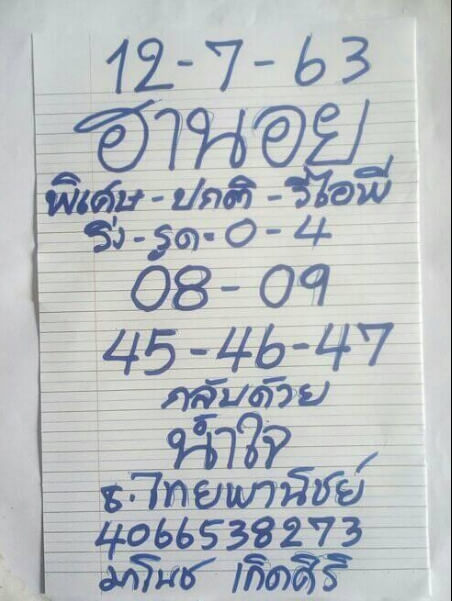 12-7-63
ฮานอย
พิเศษ-ปกติ-วีไอพี
วิ่ง-รูด-0-4
08-09
45-46-47
กลับด้วย
น้ำใจ
ธ.ไทยพานิชย์
4066538273
มาโนช เกิดศิริ